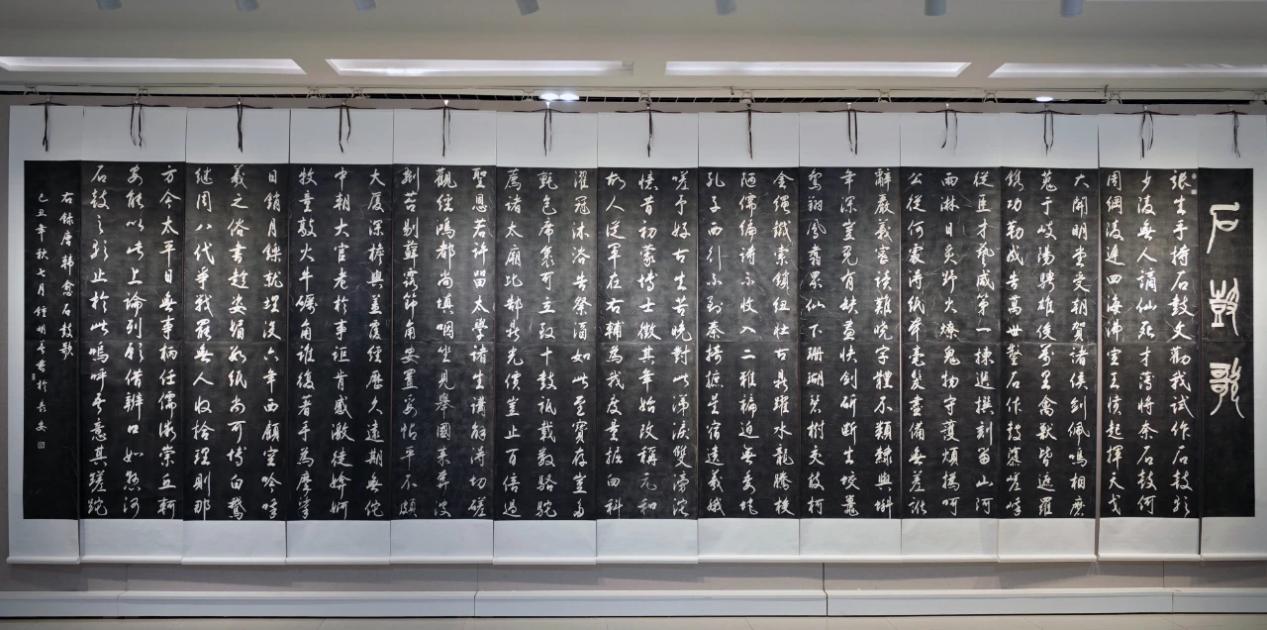 石鼓歌
張生手持石鼓文勸我試作石鼓歌
少陵無人謫仙死才薄將奈石鼓何
周綱陵遲四海沸宣王憤起揮天戈
大開明堂受朝賀諸侯劍佩鳴相磨
蒐于岐陽騁雄俊萬里禽獸皆遮羅
鐫功勒成告萬世鑿石作鼓隳嵯峨
從臣才藝咸第一揀選撰刻留山阿
雨淋日炙野火燎鬼物守護煩撝呵
公從何處得紙本毫髮盡備無差訛
辭嚴義密讀難曉字體不類隸與蝌
年深豈免有缺畫快劍斫斷生蛟鼉
鸞翔鳳翥眾仙下珊瑚碧樹交枝柯
金繩鐵索鎖鈕壯古鼎躍水龍騰梭
陋儒編詩不收入二雅褊迫無委蛇
孔子西行不到秦掎摭星宿遺羲娥
嗟予好古生苦晚對此涕淚雙滂沱
憶昔初蒙博士徵其年始改稱元和
故人從軍在右輔為我度量掘臼科
濯冠沐浴告祭酒如此至寶存豈多
氈包席裹可立致十鼓祇載數駱駝
薦諸太廟比郜鼎光價豈止百倍過
聖恩若許留太學諸生講解得切磋
觀經鴻都尚填咽坐見舉國來奔波
剜苔剔蘚露節角安置妥帖平不頗
大廈深檐與蓋覆經歷久遠期無佗
中朝大官老於事詎肯感激徒媕婀
牧童敲火牛礪角誰復著手為摩挲
日銷月鑠就埋沒六年西顧空吟哦
羲之俗書趁姿媚數紙尚可博白鵝
繼周八代爭戰罷無人收拾理則那
方今太平日無事柄任儒術崇丘軻
安能以此上論列願借辯口如懸河
石鼓之歌止於此嗚呼吾意其蹉跎
右錄唐韓愈石鼓歌
乙丑年秋七月鍾明善書於長安